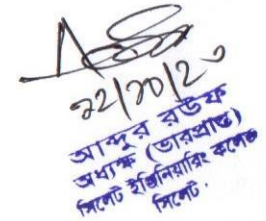 ২২/১০/২০
আব্দুর রউফ
অধ্যক্ষ (ভারপ্রাপ্ত)
সিলেট ইঞ্জিনিয়ারিং কলেজ
সিলেট।